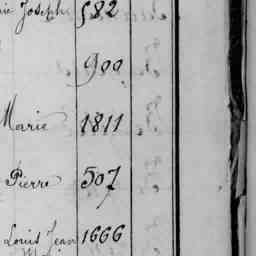 Joseph 582
900
Marie 1811
Pierre 507
Louis Jean 1666